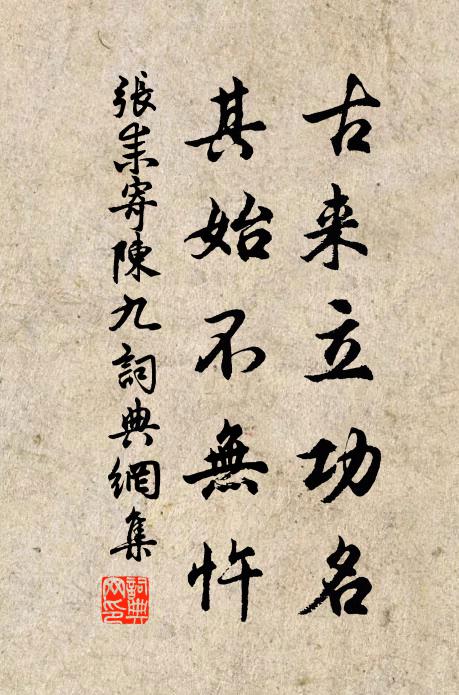 古来立功名
其始不無忤
張耒寄陳九詞典網集
詞典網印